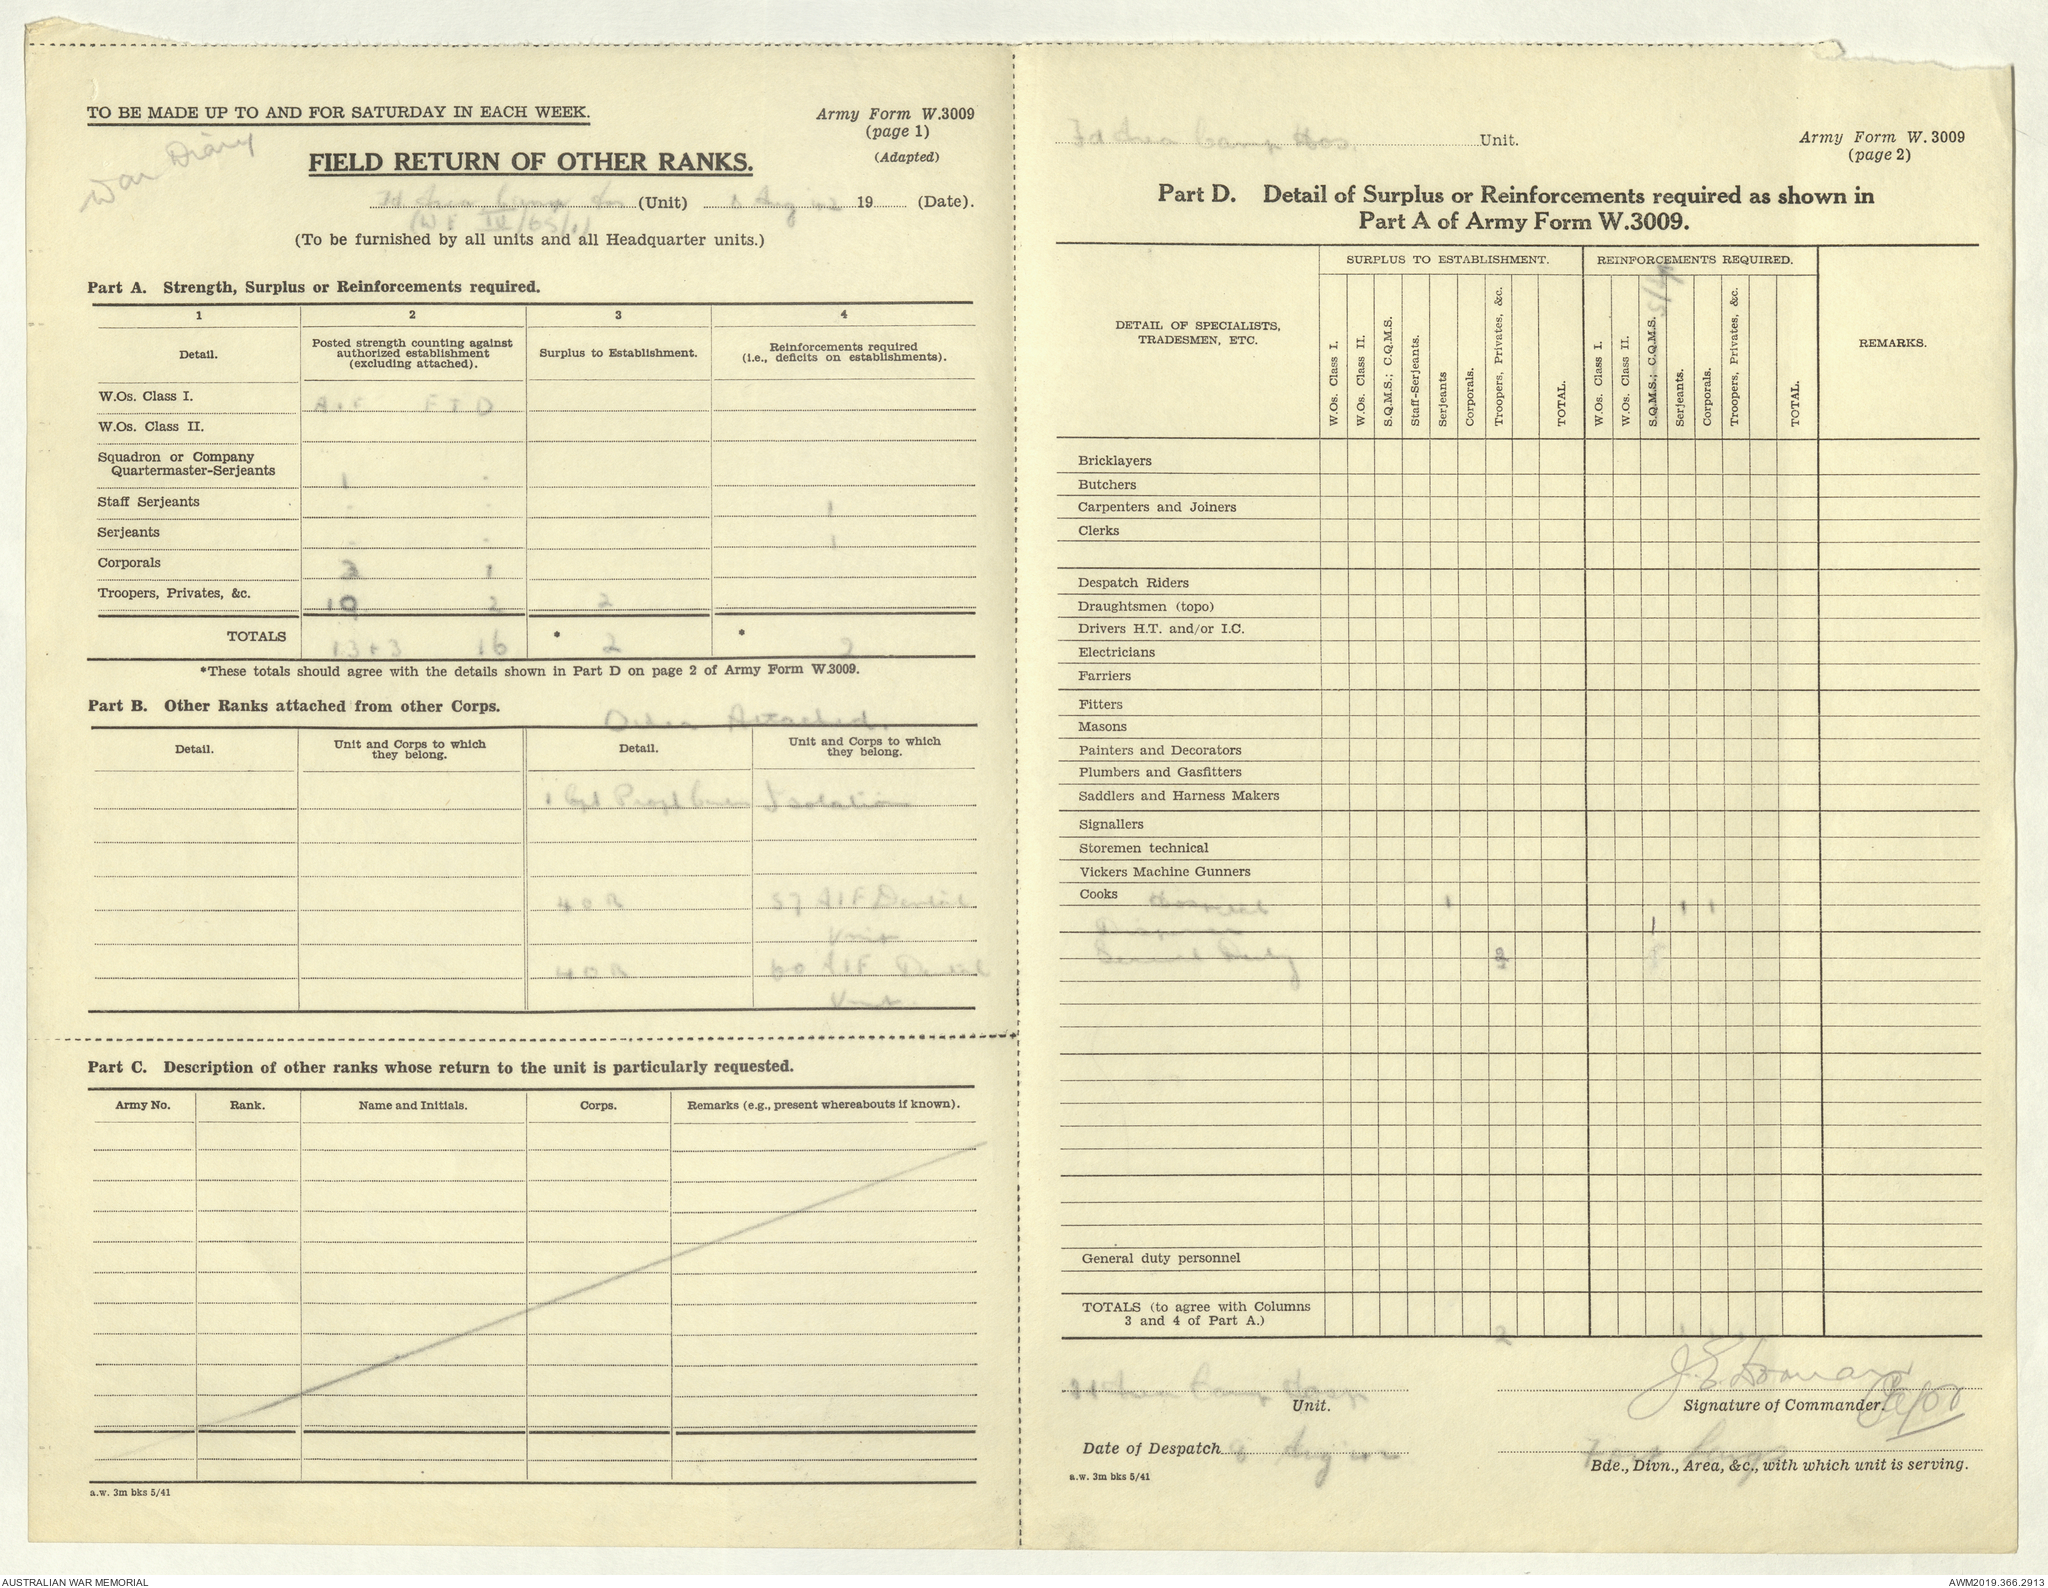 TO BE MADE UP TO AND FOR SATURDAY IN EACH WEEK.
Army Form W.3009
(page 1)
(Adapted)
War Diary
FIELD RETURN OF OTHER RANKS.
Area Camp (Unit) 8 Aug 42 19 (Date).
(W.E. IV/65/1)
(To be furnished by all units and all Headquarter units.)
Part A. Strength, Surplus or Reinforcements required.
1 2 3 4
Detail. Posted strength counting against authorized establishment (excluding attached). Surplus to Establishment. Reinforcements required (i.e., deficits on establishments).
W.Os. Class I. A.I.F F T D
W.Os. Class II.
Squadron or Company
Quartermaster-Serjeants 1 -
Staff Serjeants - - 1
Serjeants - - 1
Corporals 1
Troopers, Privates, &c. 10 2 2
TOTALS 13+3 16 * 2 *
*These totals should agree with the details shown in Part D on page 2 of Army Form W.3009.
Part B. Other Ranks attached from other Corps.
Attached.
Detail. Unit and Corps to which they belong. Detail. Unit and Corps to which they belong.
1 Isolation
4 O R 57 AIF Dental
Unit
4 O R 60 AIF Dental
Unit
Part C. Description of other ranks whose return to the unit is particularly requested.
Army No. Rank. Name and Initials. Corps. Remarks (e.g., present whereabouts if known).
a.w. 3m bks 5/41
Area Camp Hos. Unit.
Army Form W. 3009
(page 2)
Part D. Detail of Surplus or Reinforcements required as shown in
Part A of Army Form W.3009.
SURPLUS TO ESTABLISHMENT. REINFORCEMENTS REQUIRED.
DETAIL OF SPECIALISTS,
TRADESMEN, ETC.
W.Os. Class I.
W.Os. Class II.
S.Q.M.S.; C.Q.M.S.
Staff-Serjeants.
Serjeants
Corporals.
Troopers, Privates, &c.
TOTAL.
W.Os. Class I.
W.Os. Class II.
S.Q.M.S.; C.Q.M.S.
Serjeants.
Corporals.
Troopers, Privates, &c.
TOTAL.
REMARKS.
Bricklayers
Butchers
Carpenters and Joiners
Clerks
Despatch Riders
Draughtsmen (topo)
Drivers H.T. and/or I.C.
Electricians
Farriers
Fitters
Masons
Painters and Decorators
Plumbers and Gasfitters
Saddlers and Harness Makers
Signallers
Storemen technical
Vickers Machine Gunners
Cooks Hospital 1 1 1
Dispenser 1
General Duty 2
General duty personnel
TOTALS (to agree with Columns
3 and 4 of Part A.) 2
Area Camp Hosp
Unit.
Signature of Commander.
Date of Despatch 8 Aug 42
Bde., Divn., Area, &c., with which unit is serving.
a.w. 3m bks 5/41
AUSTRALIAN WAR MEMORIAL
AWM2019.366.2913